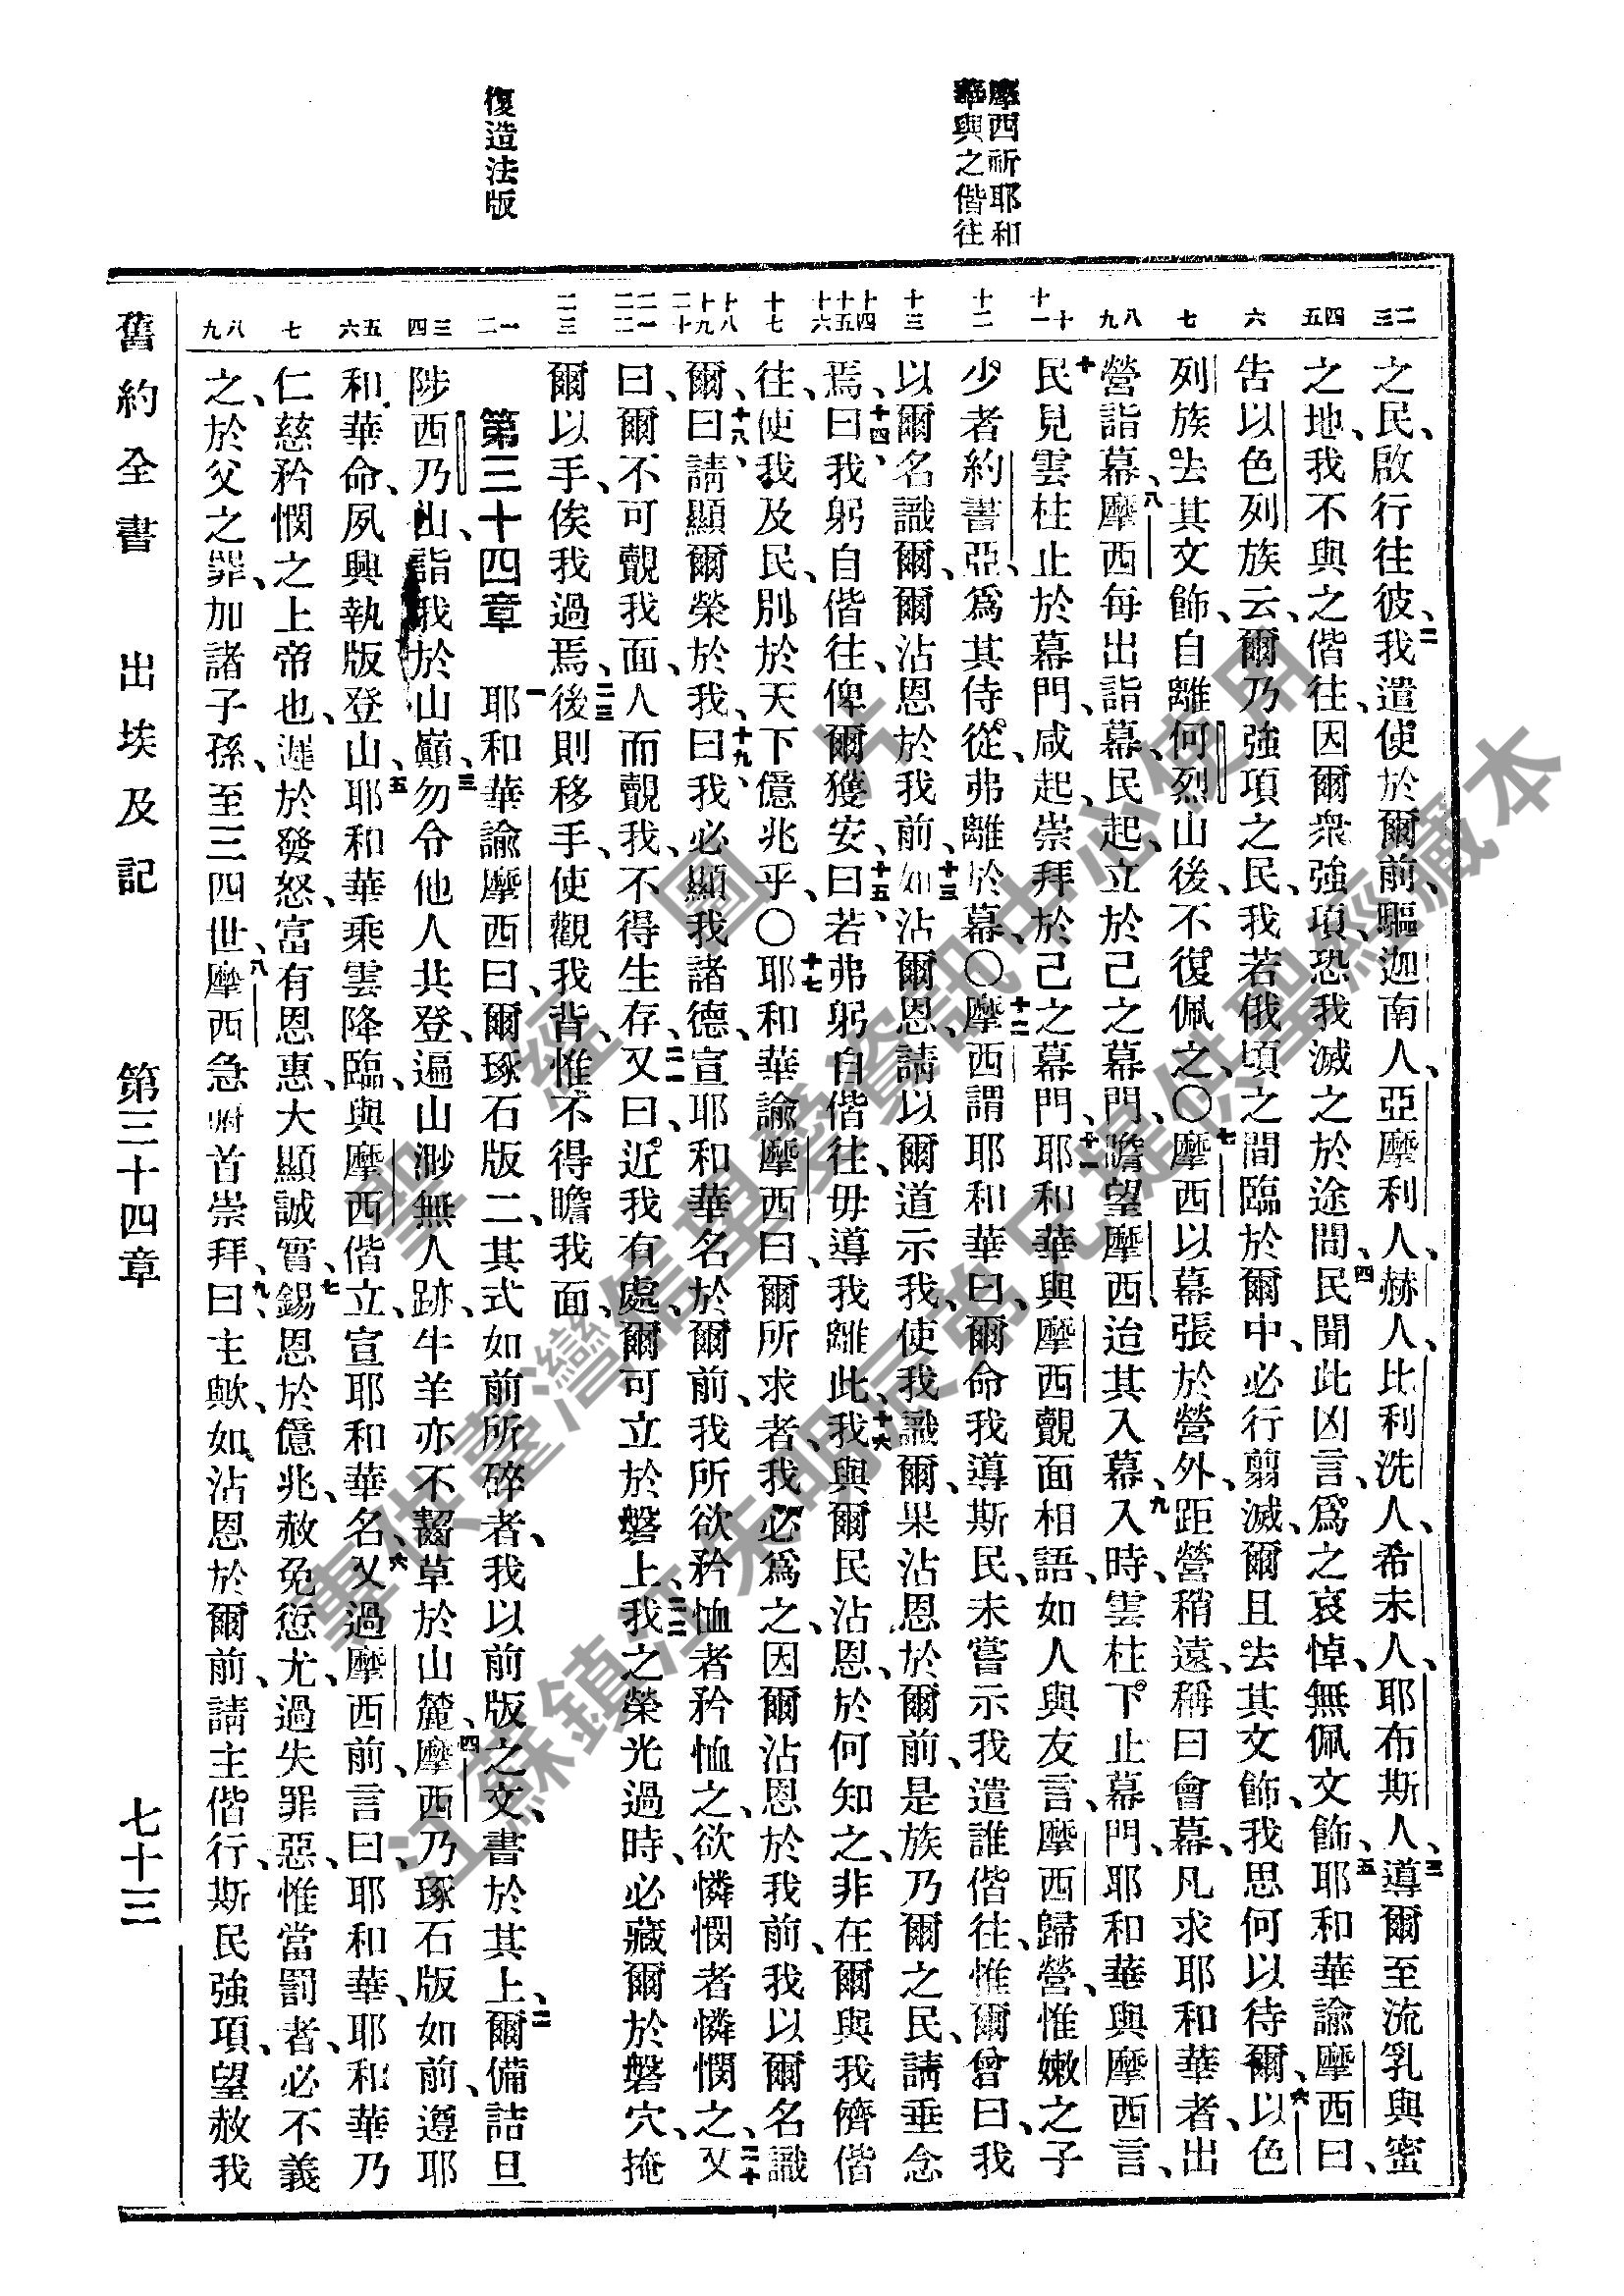 摩西祈耶和
華與之偕往
復造法版
二 三 四 五 六 七 八 九 十 十一 十二 十三 十四 十五 十六 十七 十八 十九 二十 二一 二二 二三 一 二 三 四 五 六 七 八 九
之民、啟行往彼、二我遣使於爾前、驅迦南人、亞摩利人、赫人、比利洗人、希未人、耶布斯人、三導爾至流乳與蜜
之地、我不與之偕往、因爾衆強項、恐我滅之於途間、四民聞此凶言、爲之哀悼、無佩文飾、五耶和華諭摩西曰、
告以色列族云、爾乃強項之民、我若俄頃之間臨於爾中、必行翦滅、爾且去其文飾、我思何以待爾、六以色
列族、去其文飾、自離何烈山後、不復佩之、〇七摩西以幕張於營外、距營稍遠、稱曰會幕、凡求耶和華者、出
營詣幕、八摩西每出詣幕、民起、立於己之幕門、瞻望摩西、迨其入幕、九入時、雲柱下止幕門、耶和華與摩西言、
十民見雲柱止於幕門、咸起、崇拜於己之幕門、十一耶和華與摩西覿面相語、如人與友言、摩西歸營、惟嫩之子
少者約書亞、爲其侍從、弗離於幕、〇十二摩西謂耶和華曰、爾命我導斯民、未嘗示我遣誰偕往、惟爾曾曰、我
以爾名識爾、爾沾恩於我前、十三如沾爾恩、請以爾道示我、使我識爾、果沾恩於爾前、是族乃爾之民、請垂念
焉、十四曰、我躬自偕往、俾爾獲安、十五曰、若弗躬自偕往、毋導我離此、十六我與爾民沾恩、於何知之、非在爾與我儕偕
往、使我及民、別於天下億兆乎、〇十七耶和華諭摩西曰、爾所求者、我必爲之、因爾沾恩於我前、我以爾名識
爾、十八曰、請顯爾榮於我、十九曰、我必顯我諸德、宣耶和華名於爾前、我所欲矜恤者矜恤之、欲憐憫者憐憫之、二十又
曰、爾不可覿我面、人而覿我、不得生存、二一又曰、近我有處、爾可立於磐上、二二我之榮光過時、必藏爾於磐穴、掩
爾以手、俟我過焉、二三後則移手、使觀我背、惟不得瞻我面、
第三十四章 一耶和華諭摩西曰、爾琢石版二、其式如前所碎者、我以前版之文、書於其上、二爾備詰旦
陟西乃山、詣我於山巔、三勿令他人共登、遍山渺無人跡、牛羊亦不齧草於山麓、四摩西乃琢石版如前、遵耶
和華命、夙興執版登山、五耶和華乘雲降臨、與摩西偕立、宣耶和華名、六又過摩西前、言曰、耶和華、耶和華乃
仁慈矜憫之上帝也、遲於發怒、富有恩惠、大顯誠實、七錫恩於億兆、赦免愆尤、過失罪惡、惟當罰者、必不義
之、於父之罪、加諸子孫、至三四世、八摩西急俯首崇拜、九曰、主歟、如沾恩於爾前、請主偕行、斯民強項、望赦我
舊約全書 出埃及記 第三十四章 七十三
聖經圖片
專供臺灣信望愛資訊中心使用
江蘇鎮江朱明辰弟兄提供聖經藏本